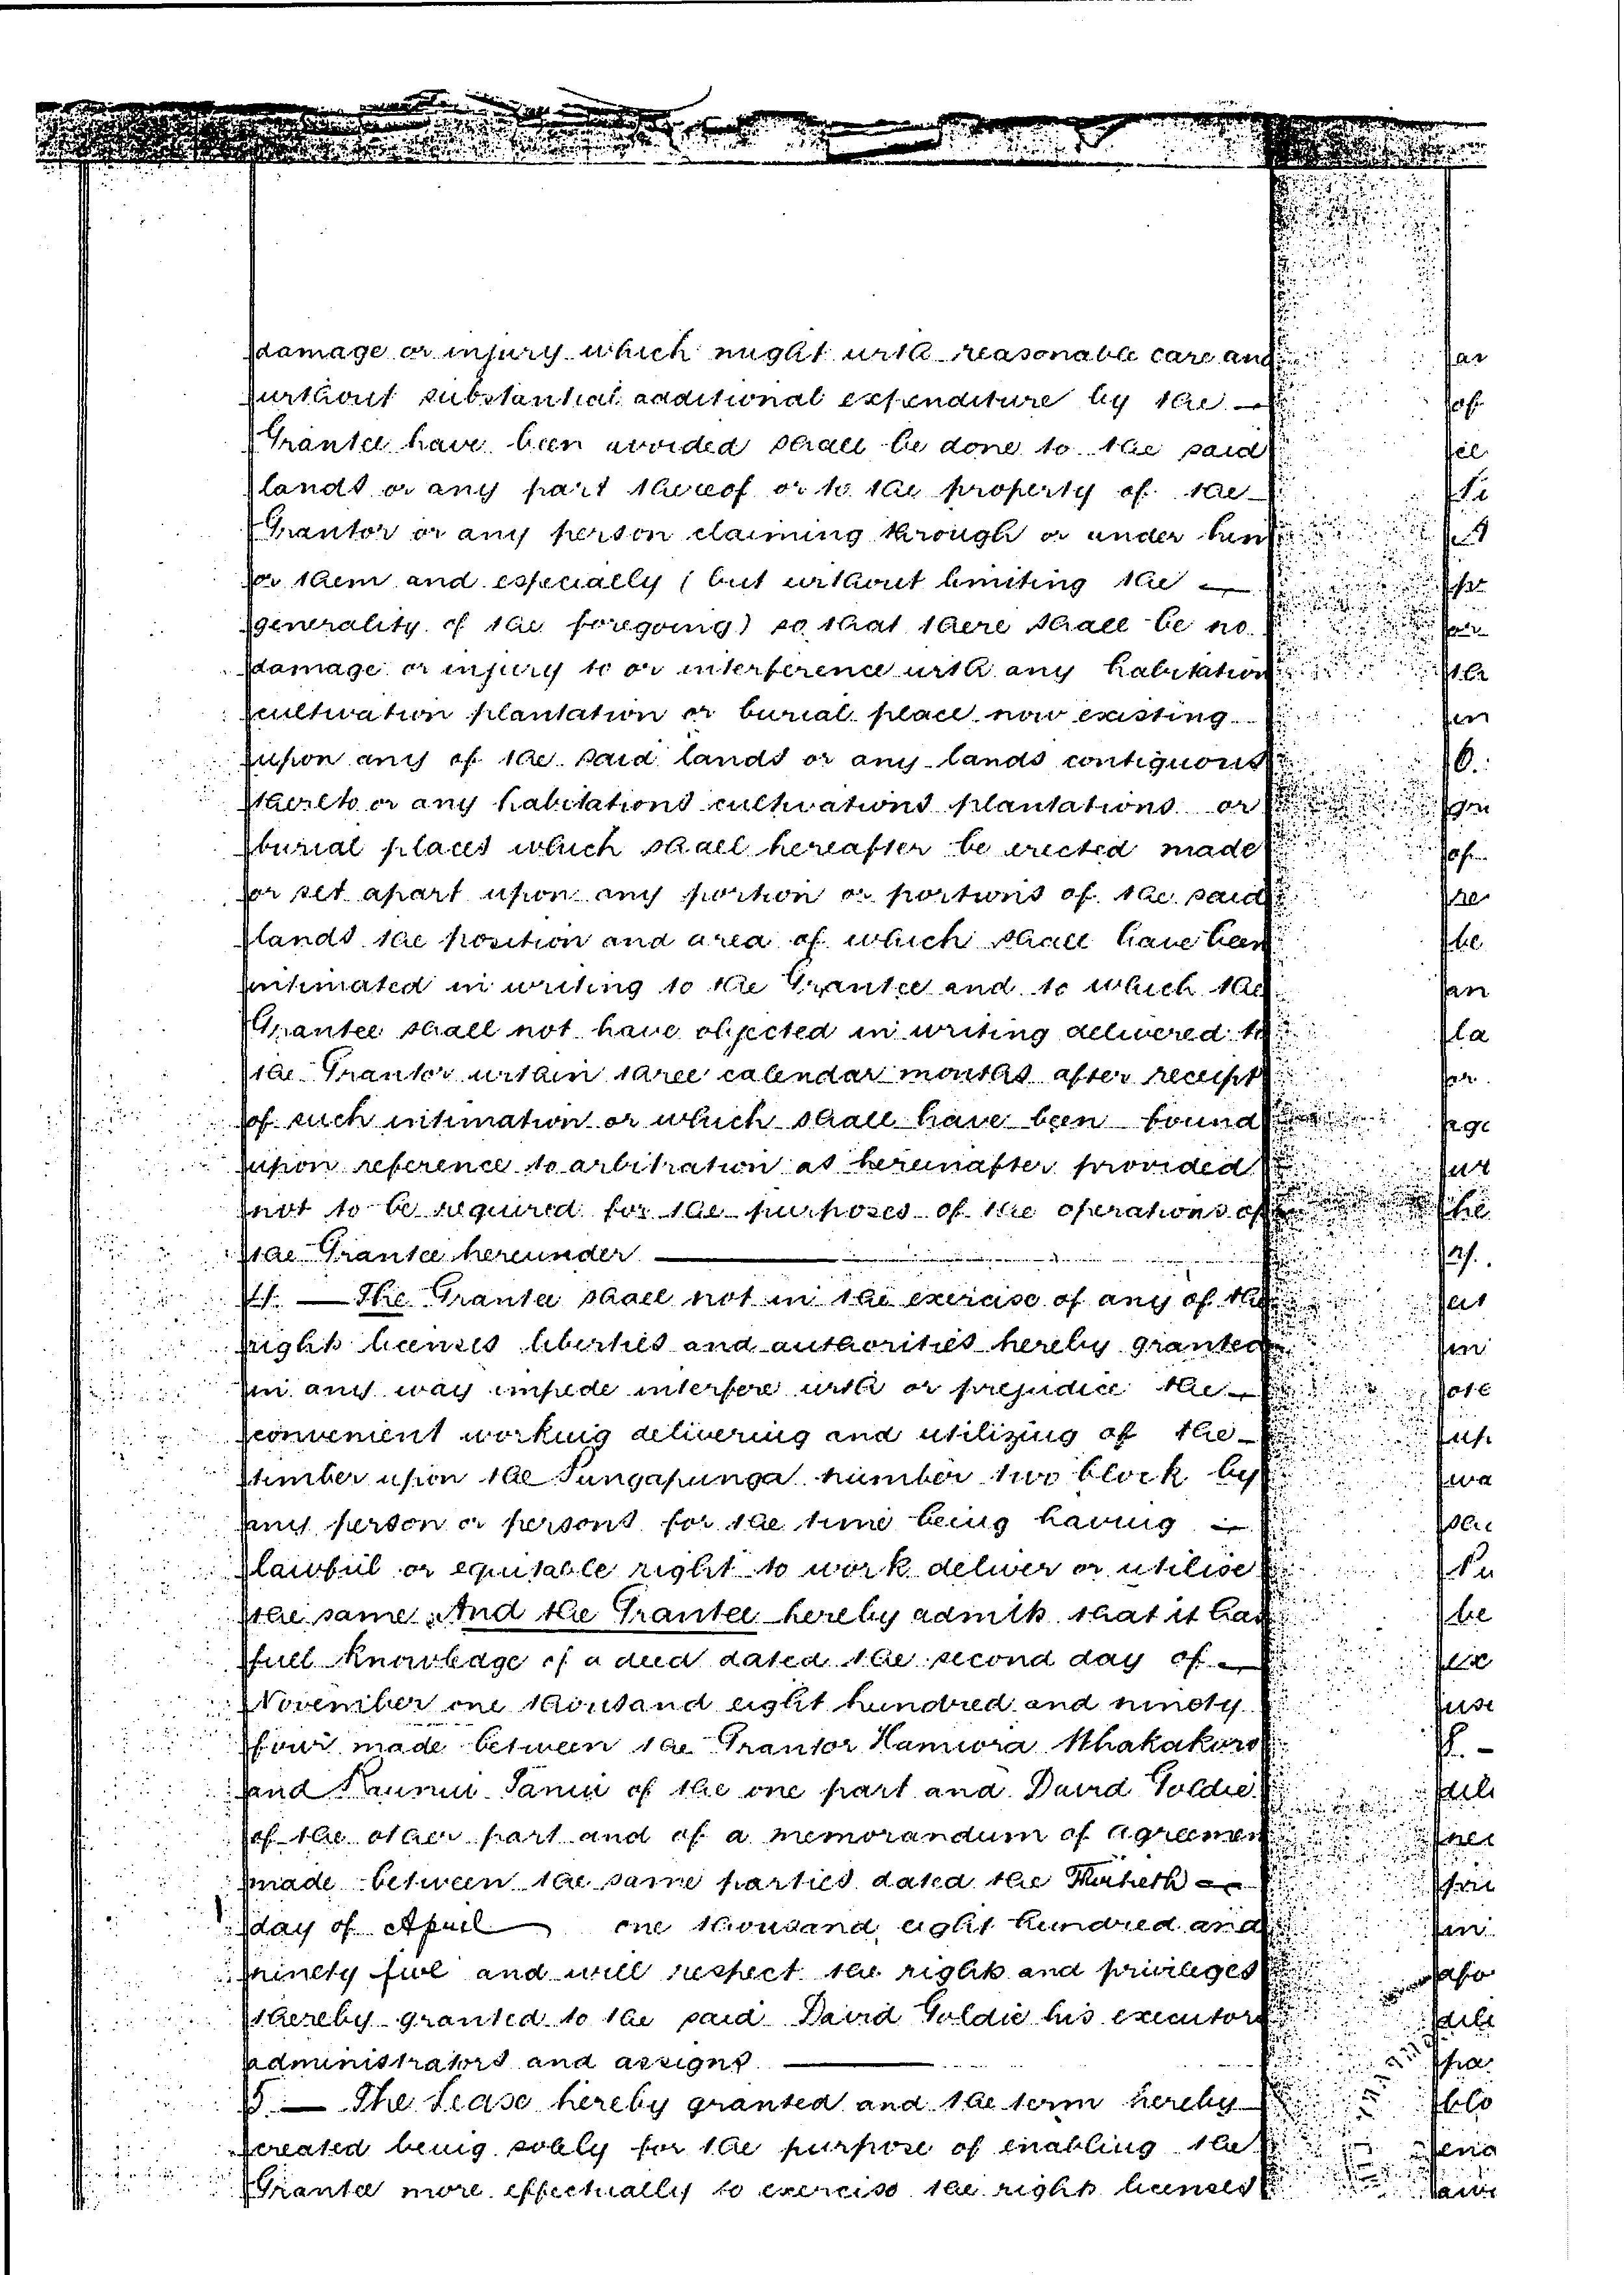 damage or injury which might with reasonable care and
without substantial additional expenditure by the
Grantee have been avoided shall be done to the said
lands or any part thereof or to the property of the
Grantor or any person claiming through or under him
or them and especially (but without limiting the
generality of the foregoing) so that there shall be no
damage or injury to or interference with any habitation
cultivation plantation or burial place now existing
upon any of the said lands or any lands contiguous
thereto or any habitations cultivations plantations or
burial places which shall hereafter be erected made
or set apart upon any portion or portions of the said
lands the position and area of which shall have been
intimated in writing to the Grantee and to which the
Grantee shall not have objected in writing delivered to
the Grantor within three calendar months after receipt
of such intimation or which shall have been found
upon reference to arbitration as hereinafter provided
not to be required for the purposes of the operations of
the Grantee hereunder
4. — The Grantee shall not in the exercise of any of the
rights licenses liberties and authorities hereby granted
in any way impede interfere with or prejudice the
convenient working delivering and utilizing of the
timber upon the Pungapunga number two block by
any person or persons for the time being having
lawful or equitable right to work deliver or utilise
the same And the Grantee hereby admits that it has
full knowledge of a deed dated the second day of
November one thousand eight hundred and ninety
four made between the Grantor Hamiora Whakakoro
and of the one part and David Goldie
of the other part and of a memorandum of agreemen
made between the same parties dated the Thirtieth
day of April one thousand eight hundred and
ninety five and will respect the rights and privileges
thereby granted to the said David Goldie his executors
administrators and assigns
5 — The Lease hereby granted and the term hereby
created being solely for the purpose of enabling the
Grantee more effectually to exercise the rights licenses